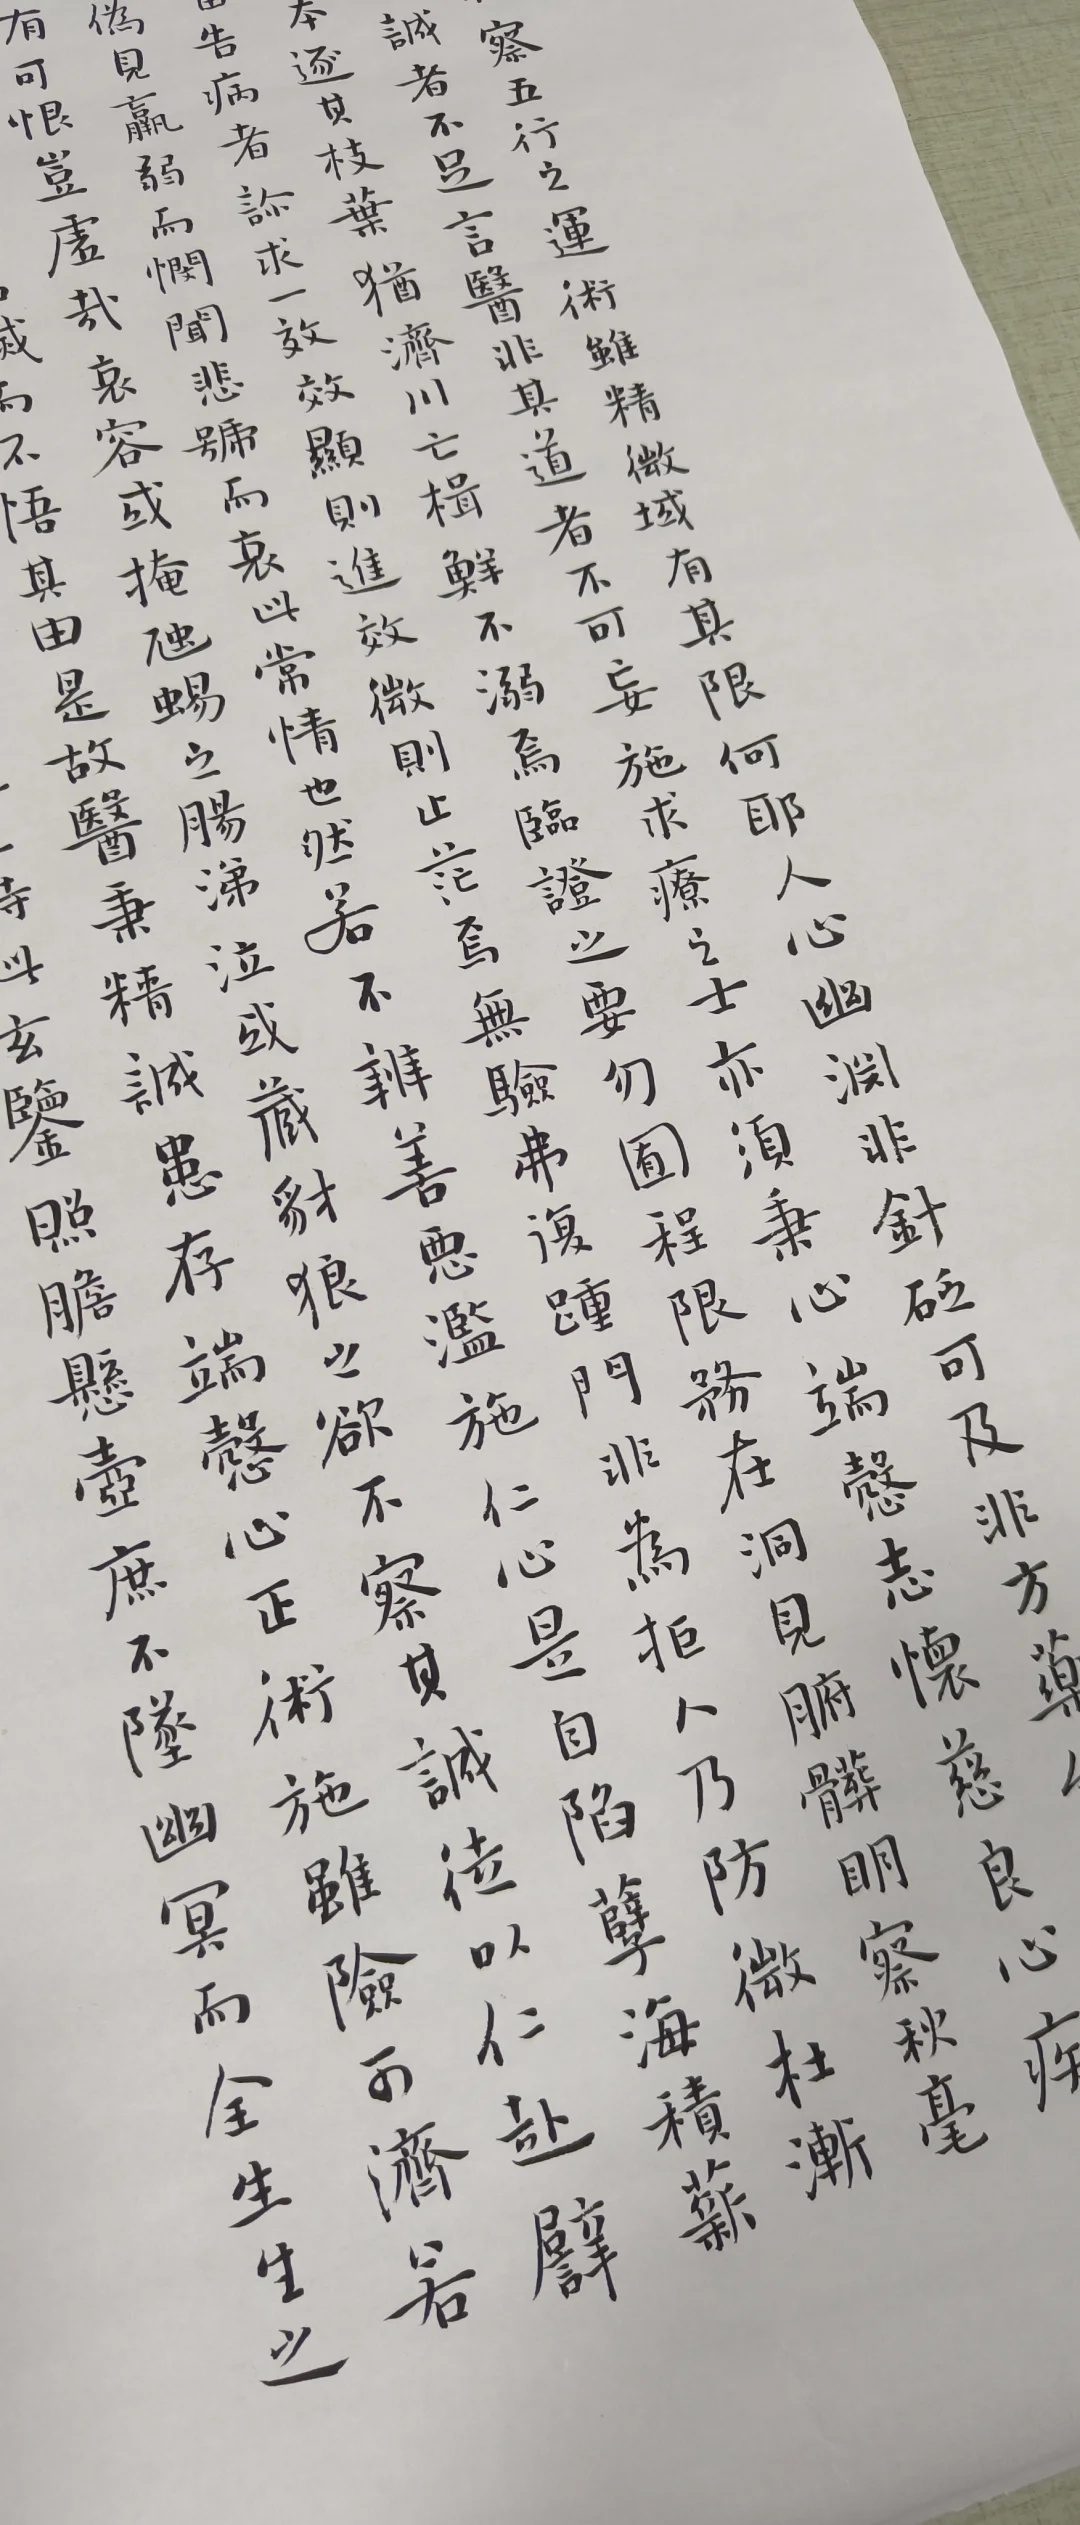 察五行之運術雖精微域有其限何耶人心幽淵非針砭可及非方藥
誠者不足言醫非其道者不可妄施求療之士亦須秉心端愨志懷慈良心疾
本逐其枝葉猶濟川亡楫鮮不溺焉臨證之要勿囿程限務在洞見腑髒明察秋毫
告病者診求一效效顯則進效微則止茫焉無驗弗復踵門非為拒人乃防微杜漸
偽見羸弱而憫聞悲號而哀此常情也然若不辨善惡濫施仁心是自陷孽海積薪
有可恨豈虛哉哀容或掩虺蜴之腸涕泣或藏豺狼之欲不察其誠徒以仁赴譬
滅而不悟其由是故醫秉精誠患存端愨心正術施雖險可濟若
此玄鑒照膽懸壺庶不墜幽冥而全生生之